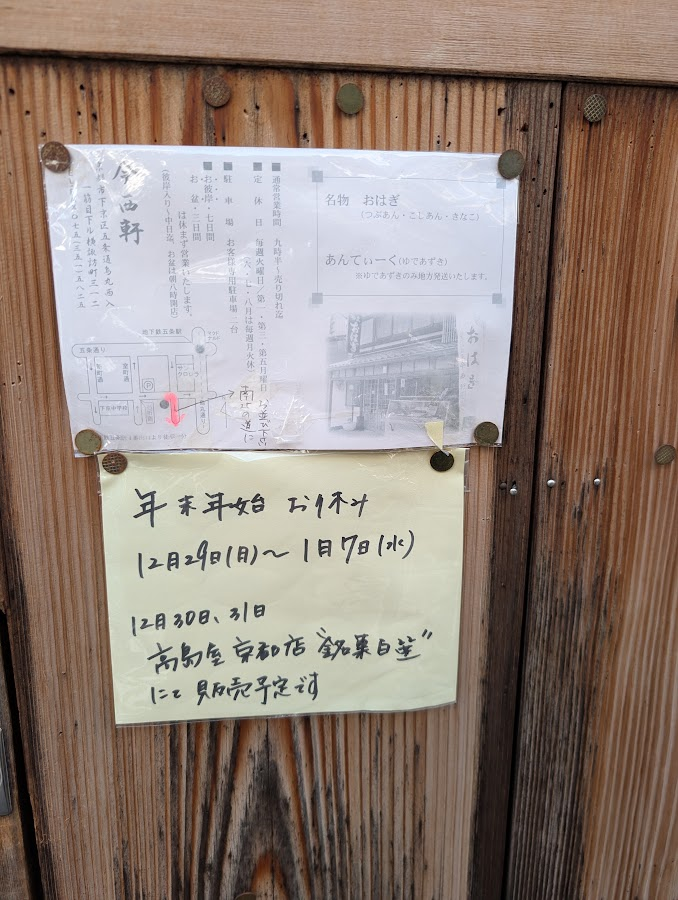 名物　おはぎ
(つぶあん・こしあん・きなこ)
あんてぃーく(ゆであずき)
※ゆであずきのみ地方発送いたします。
■通常営業時間　九時半～売り切れ迄
■定休日　毎週火曜日／第一・第三・第五月曜日
(六・七・八月は毎週月火休)
■駐車場　お客様専用駐車場　一台
■お彼岸・七日間
お盆・三日間
は休まず営業いたします。
(彼岸入り～中日迄、お盆は朝八時開店)
今西軒
京都市下京区五条通烏丸西入
一筋目下ル横諏訪町三一二
〇七五(三五一)五八二五
地下鉄五条駅
五条通り
室町通
烏丸通り
P
下京中学校
お並び下さい
南北の道に
おはぎ
年末年始 お休み
12月29日(月)～1月7日(水)
12月30日、31日
高島屋京都店"銘菓百選"
にて販売予定です